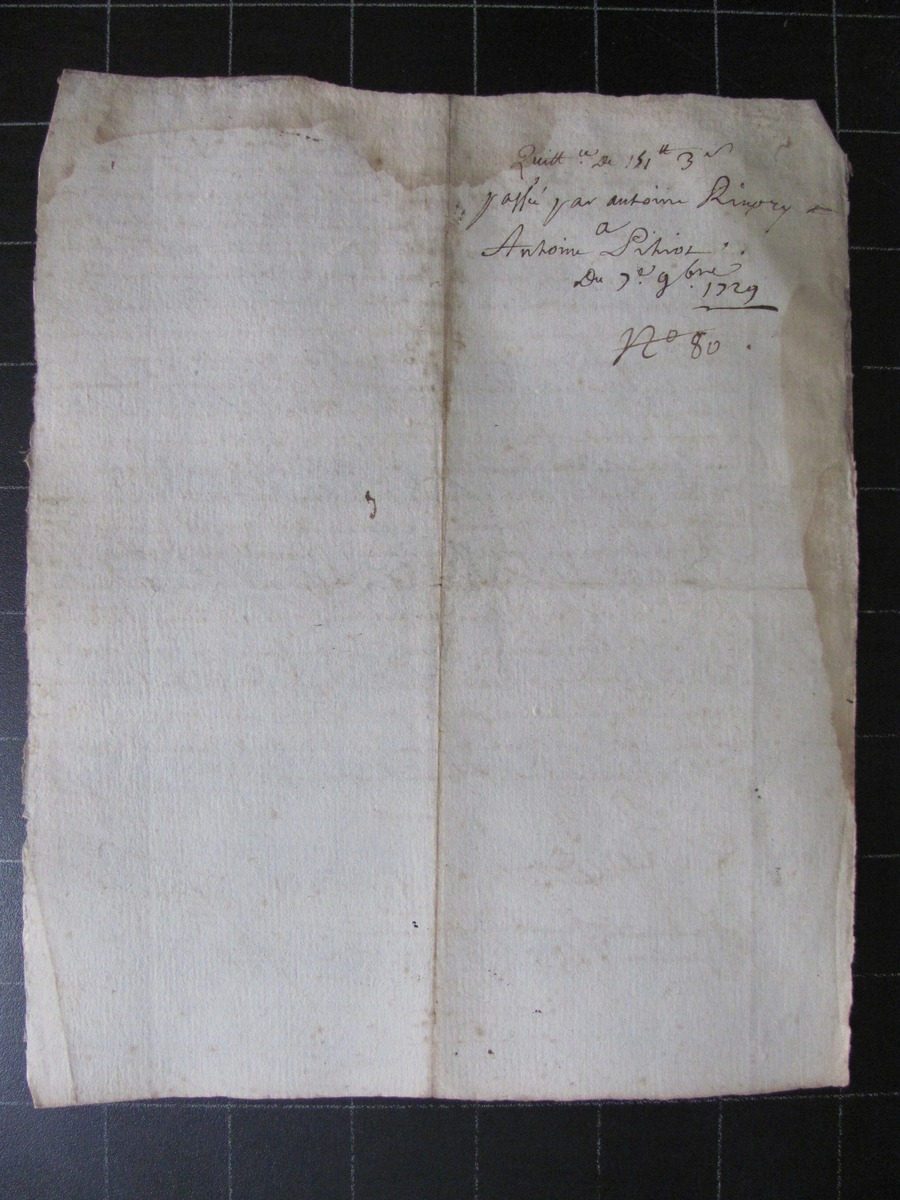 Quitt.ce De 151tt 3s
passé par antoine
a
Antoine Pitiot.
Du 7e 9bre
1729
No 80.